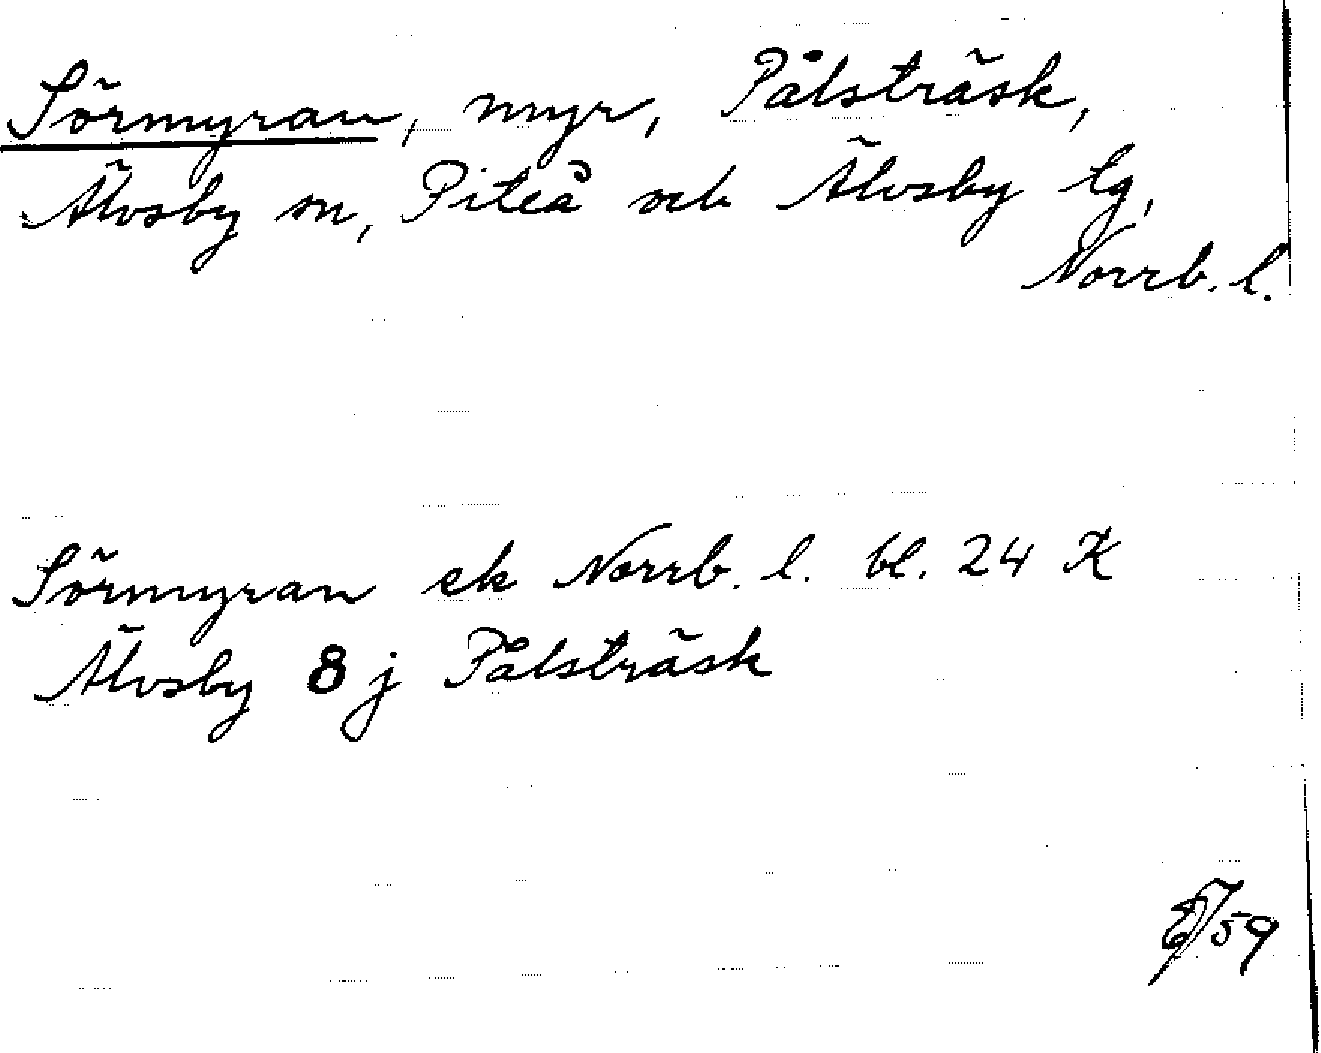 Sörmyran, myr, Pålsträsk,
Älvsby sn, Piteå och Älvsby tg,
Norrb. l.
Sörmyran ek Norrb. l. bl. 24 K
Älvsby 8 j Pålsträsk
59